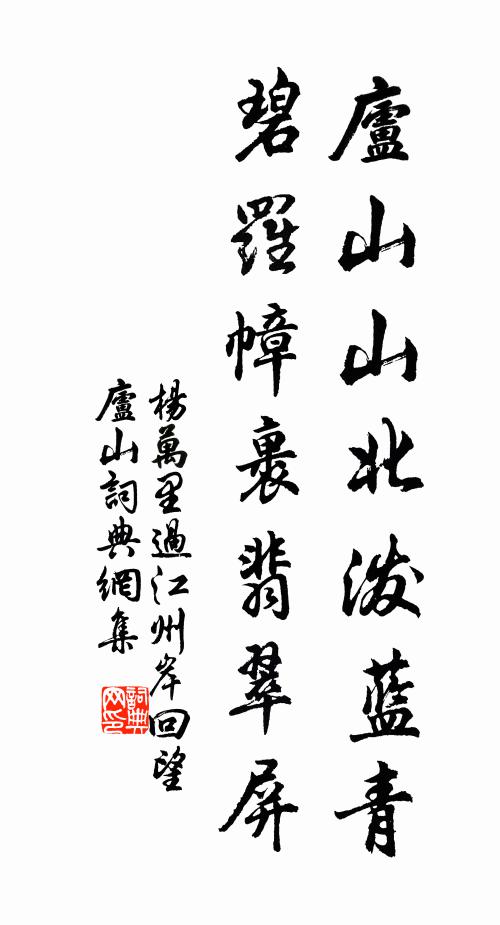 廬山山北泼藍青
碧羅幛裹翡翠屏
楊萬里過江州岸回望
廬山詞典網集
詞典网印